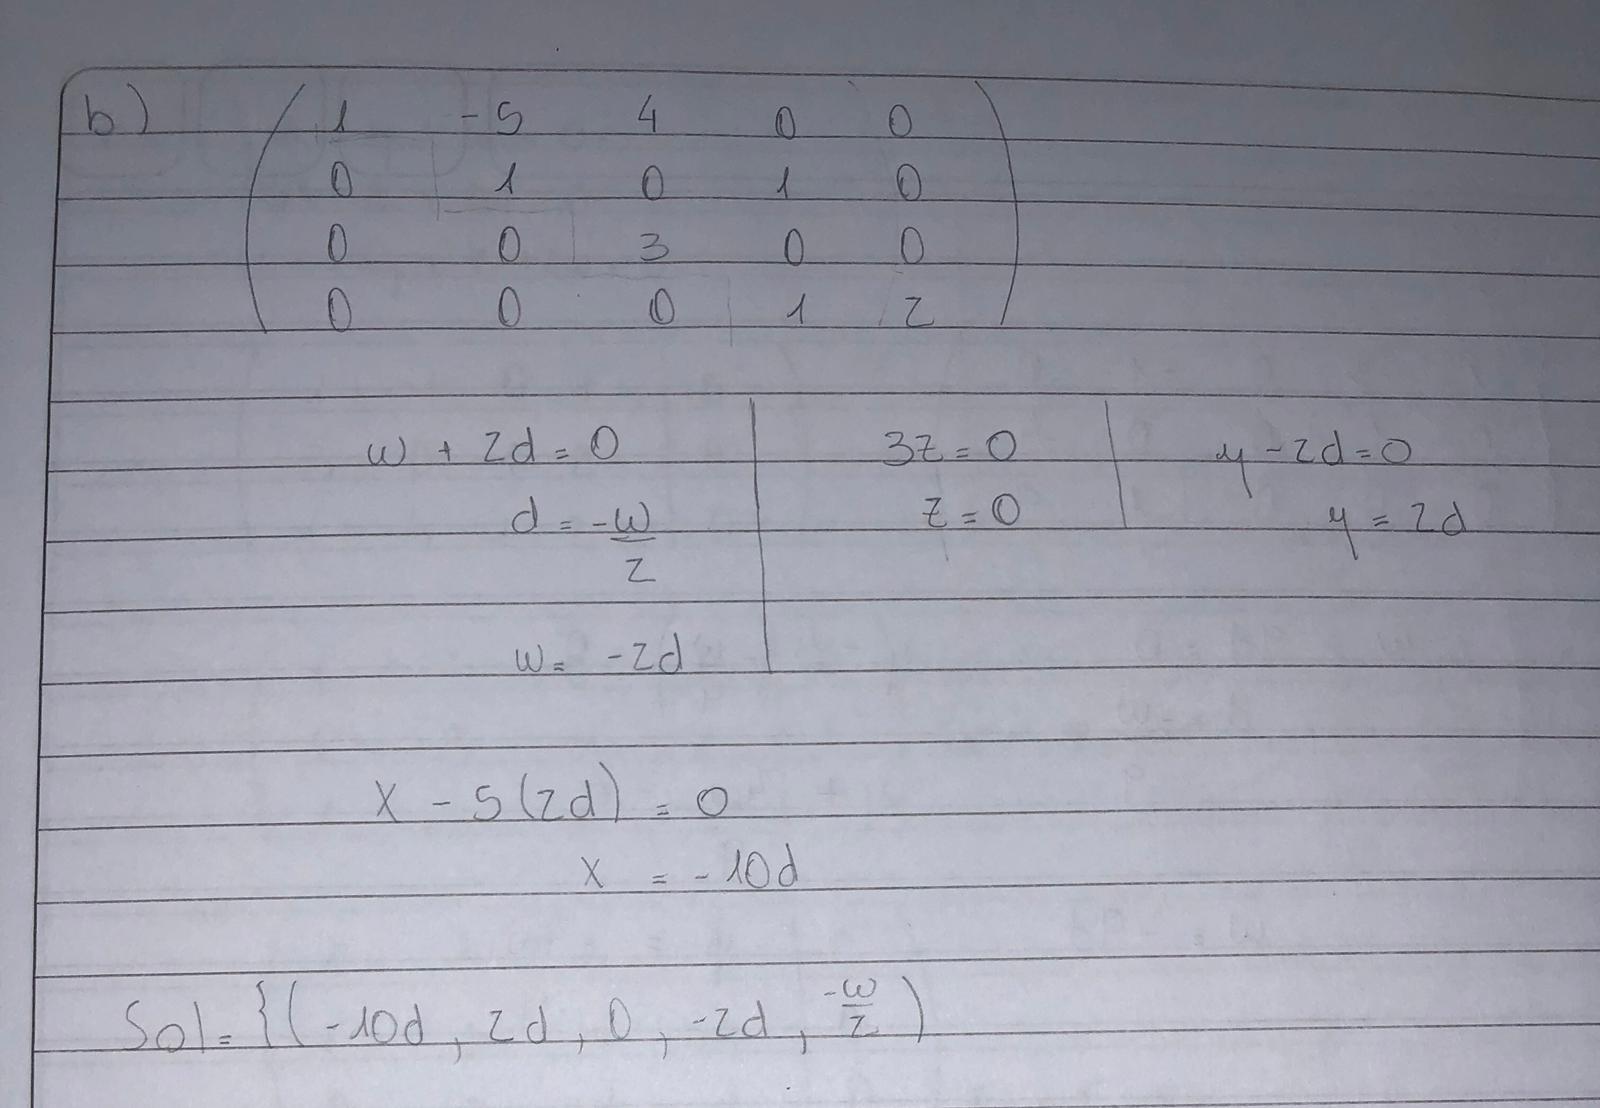 b) ( 1 -5 4 0 0 )
0 1 0 1 0
0 0 3 0 0
0 0 0 1 2
w + 2d = 0 | 3z = 0 | y - 2d = 0
d = -w/2 | z = 0 | y = 2d
w = -2d
x - 5(2d) = 0
x = -10d
Sol = {(-10d, 2d, 0, -2d, -w/2)